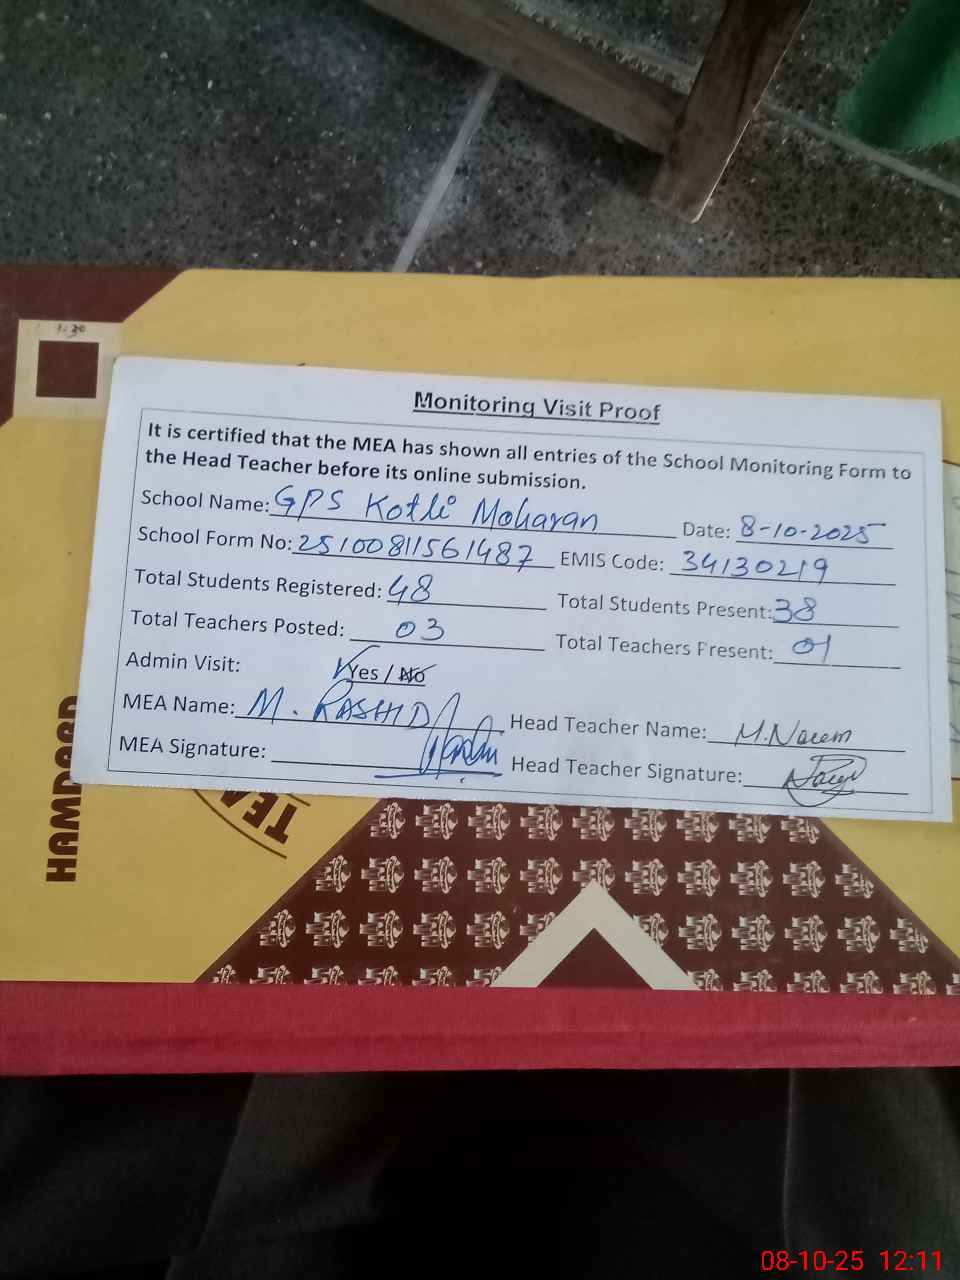 1:30
Monitoring Visit Proof
It is certified that the MEA has shown all entries of the School Monitoring Form to
the Head Teacher before its online submission.
School Name: GPS Kotli Moharan Date: 8-10-2025
School Form No: 25100811561487 EMIS Code: 34130219
Total Students Registered: 48 Total Students Present: 38
Total Teachers Posted: 03 Total Teachers Present: 01
Admin Visit: Yes / No
MEA Name: M. RASHID Head Teacher Name: M. Naeem
MEA Signature: Head Teacher Signature:
HAMDARD
TEA
08-10-25 12:11